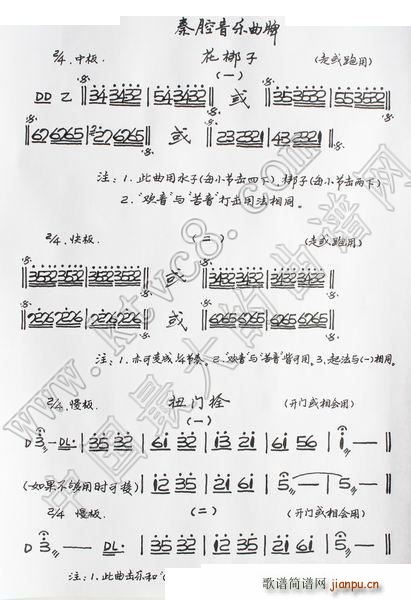 秦腔音乐曲牌
2/4. 中板. 花梆子 (走或跑用)
(一)
DD 乙 ‖34 3432 | 54 3432‖ 或 ‖35 3532 | 55 3532‖
‖62 6265 | 22 6265‖ 或 ‖23 2321 | 43 2321‖
注：1. 此曲用水子(每小节击四下). 梆子(每小节击两下)
2. "欢音"与"苦音"打击用法相同。
2/4. 快板. (二) (走或跑用)
‖3532 3532 | 3532 3532‖ 或 ‖3432 3432 | 3432 3432‖
‖2226 2226 | 2226 2226‖ 或 ‖6265 6265 | 6265 6265‖
注：1. 亦可变成 节奏。2. "欢音"与"苦音"皆可用。3. 起法与(一)相同。
2/4. 慢板. 扭门栓 (开门或相会用)
(一)
D 3 — DL· | 35 32 | 61 32 | 13 21 | 61 56 | 1 — |
(如果不够用时可移) | 12 35 | 21 61 | 5 — | 5 — |
2/4 慢板. (二) (开门或相会用)
D 3 — DL· | 35 32 | 12 35 | 21 61 | 5 — |
注：1. 此曲击乐和"
www.ktvc8.com
中国最大的曲谱网
歌谱简谱网
jianpu.cn